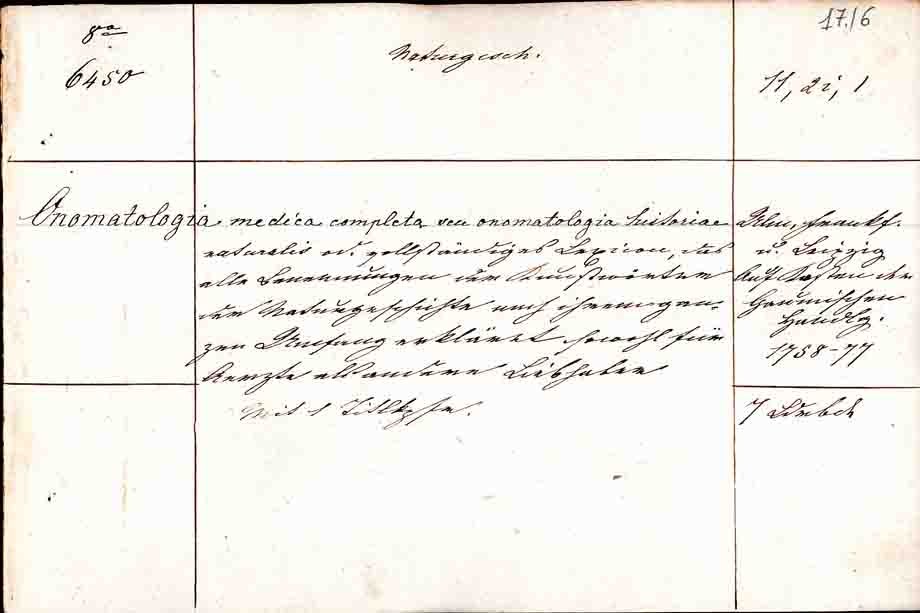 17./6
8vo
6450
Naturgesch.
11, 2i, 1
Onomatologia medica completa seu onomatologia historiae
naturalis od. vollständiges Lexicon, das
alle Benennungen der Kunstwörter
der Naturgeschichte nach ihrem gan-
zen Umfang erkläret sowohl für
Aerzte als andere Liebhaber
Mit 1 Titlkpfr.
Ulm, Frankf.
u. Leipzig
Auf Kosten der
Gaumischen
Handlg.
1758-77
7 Ldrbde